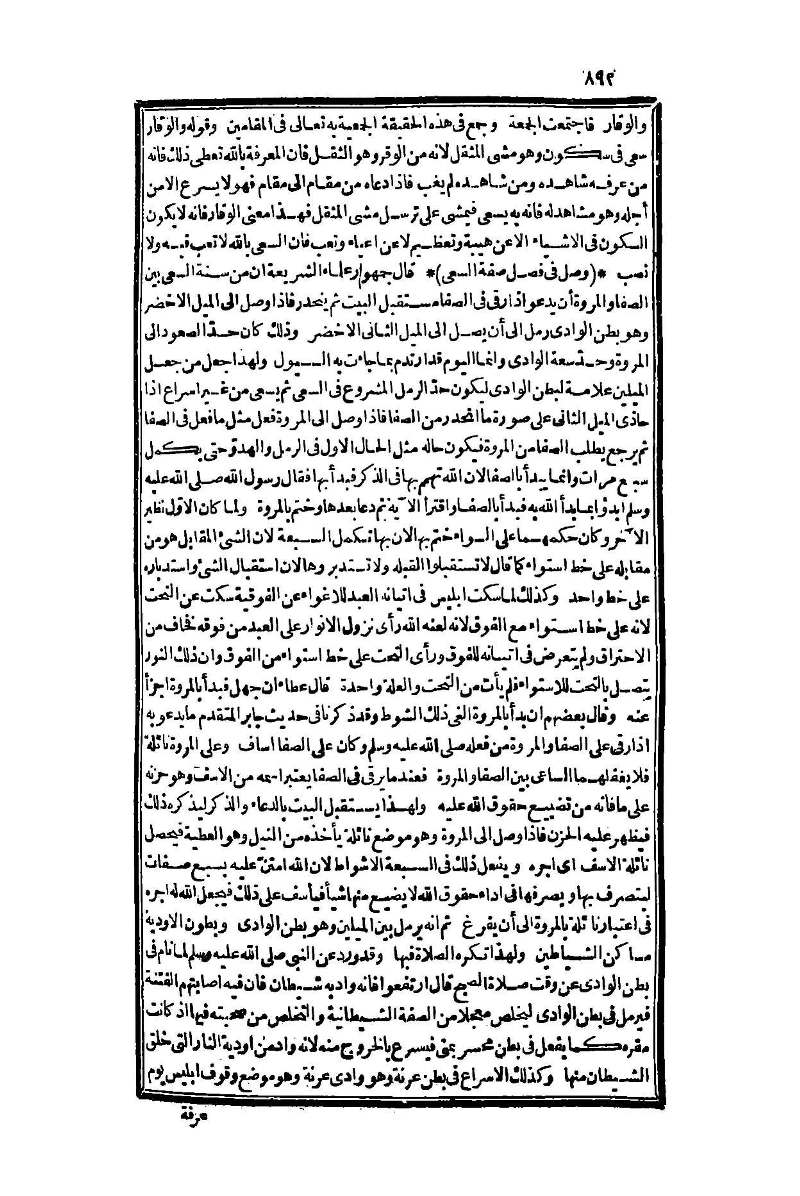 ٨٩٢
والوقار فاجتمعت الجمعة وجمع فى هذه الحقيقة الجمعية به تعالى فى المقامين وقوله والوقار
سعى فى سكون وهو مشى المثقل لانه من الوقر وهو الثقل فان المعرفة بالله تعطى ذلك فانه
من عرفه شاهده ومن شاهده لم يغب فاذا دعاه من مقام الى مقام فهو لا يسرع الا من
أجله وهو مشاهد له فانه به يسعى فيمشى على ترسل مشى المثقل فهذا معنى الوقار فانه لا يكون
السكون فى الاشياء الا عن هيبة وتعظيم لا عن اعياء وتعب فان السعى بالله لا تعب فيه ولا
نصب *(وصل فى فصل صفة السعى)* قال جمهور علماء الشريعة ان من سنة السعى بين
الصفا والمروة أن يدعو اذا رقى فى الصفا مستقبل البيت ثم ينحدر فاذا وصل الى الميل الاخضر
وهو بطن الوادى رمل الى أن يصل الى الميل الثانى الاخضر وذلك كان حد الصعود الى
المروة وحد سعة الوادى وانما اليوم قد ارتدم بما جاءت به السيول ولهذا جعل من جعل
الميلين علامة لبطن الوادى ليكون حد الرمل المشروع فى السعى ثم يسعى من غير اسراع اذا
حاذى الميل الثانى على صورة ما انحدر من الصفا فاذا وصل الى المروة فعل مثل ما فعل فى الصفا
ثم يرجع يطلب الصفا من المروة فيكون حاله مثل الحال الاول فى الرمل والهدو حتى يكمل
سبع مرات وانما يبدأ بالصفا لان الله تهمم بها فى الذكر فبدأ بها فقال رسول الله صلى الله عليه
وسلم ابدؤا بما بدأ الله به فبدأ بالصفا واقترأ الآية ثم دعا بعدها وختم بالمروة ولما كان الاول نظير
الآخر وكان حكمهما على السواء ختم بها لان بها تكمل السبعة لان الشئ المقابل هو من
مقابله على خط استواء كما قال لا تستقبلوا القبله ولا تستدبروها لان استقبال الشئ واستدباره
على خط واحد وكذلك لما سكت ابليس فى اتيانه العبد للاغواء عن الفوقية سكت عن التحت
لانه على خط استواء مع الفوق لانه لعنه الله رأى نزول الانوار على العبد من فوقه فخاف من
الاحتراق ولم يتعرض فى اتيانه للفوق ورأى التحت على خط استواء من الفوق وان ذلك النور
يتصل بالتحت للاستواء فلم يأت من التحت والعلة واحدة قال عطاء ان جهل فبدأ بالمروة اجزأ
عنه وقال بعضهم ان بدأ بالمروة الغى ذلك الشوط وقد ذكرنا فى حديث جابر المتقدم ما يدعو به
اذا رقى على الصفا والمروة من فعله صلى الله عليه وسلم وكان على الصفا اساف وعلى المروة نائلة
فلا يغفلهما الساعى بين الصفا والمروة فعند ما يرقى فى الصفا يعتبر اسمه من الاسف وهو حزنه
على ما فاته من تضييع حقوق الله عليه ولهذا يستقبل البيت بالدعاء والذكر ليذكره ذلك
فيظهر عليه الحزن فاذا وصل الى المروة وهو موضع نائلة يأخذه من النيل وهو العطية فيحصل
نائلة الاسف اى اجره ويفعل ذلك فى السبعة الاشواط لان الله امتن عليه بسبع صفات
ليتصرف بها ويصرفها فى اداء حقوق الله لا يضيع منها شيأ فيأسف على ذلك فيجعل الله له اجره
فى اعتبار نائلة بالمروة الى أن يفرغ ثم انه يرمل بين الميلين وهو بطن الوادى وبطون الاودية
مساكن الشياطين ولهذا تكره الصلاة فيها وقد ورد عن النبى صلى الله عليه وسلم لما نام فى
بطن الوادى عن وقت صلاة الصبح قال ارتفعوا فانه واد به شيطان فان فيه اصابتهم الفتنة
فيرمل فى بطن الوادى ليخلص معجلا من الصفة الشيطانية والتخلص من صحبته فيها اذ كانت
مقره كما يفعل فى بطن محسر بمنى فيسرع بالخروج منه لانه واد من اودية النار التى خلق
الشيطان منها وكذلك الاسراع فى بطن عرنة وهو وادى عرنة وهو موضع وقوف ابليس يوم
عرفة